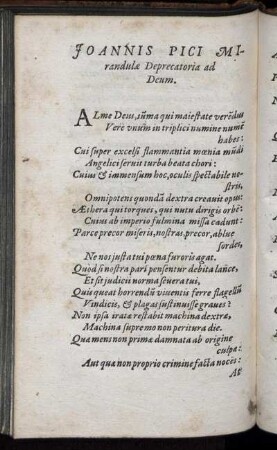 JOANNIS PICI MI-
randulæ Deprecatoria ad
Deum.
ALme Deus, sũma qui maiestate verẽdus
Vere vnum in triplici numine numẽ
habes:
Cui super excelsi flammantia mœnia mũdi
Angelici seruit turba beata chori:
Cuius & immensum hoc, oculis spectabile no-
stris,
Omnipotens quondã dextra creauit opus:
Æthera qui torques, qui nutu dirigis orbẽ:
Cuius ab imperio fulmina missa cadunt:
Parce precor miseris, nostras, precor, ablue
sordes,
Ne nos iusta tui pœna furoris agat.
Quòd si nostra pari pensentur debita lãce,
Et sit iudicij norma seuera tui,
Quis queat horrendũ viuentis ferre flagellũ
Vindicis, & plagas sustinuisse graues?
Non ipsa iratæ restabit machina dextræ,
Machina supremo non peritura die.
Quæ mens non primæ damnata ab origine
culpæ:
Aut quæ non proprio crimine facta nocẽs:
At